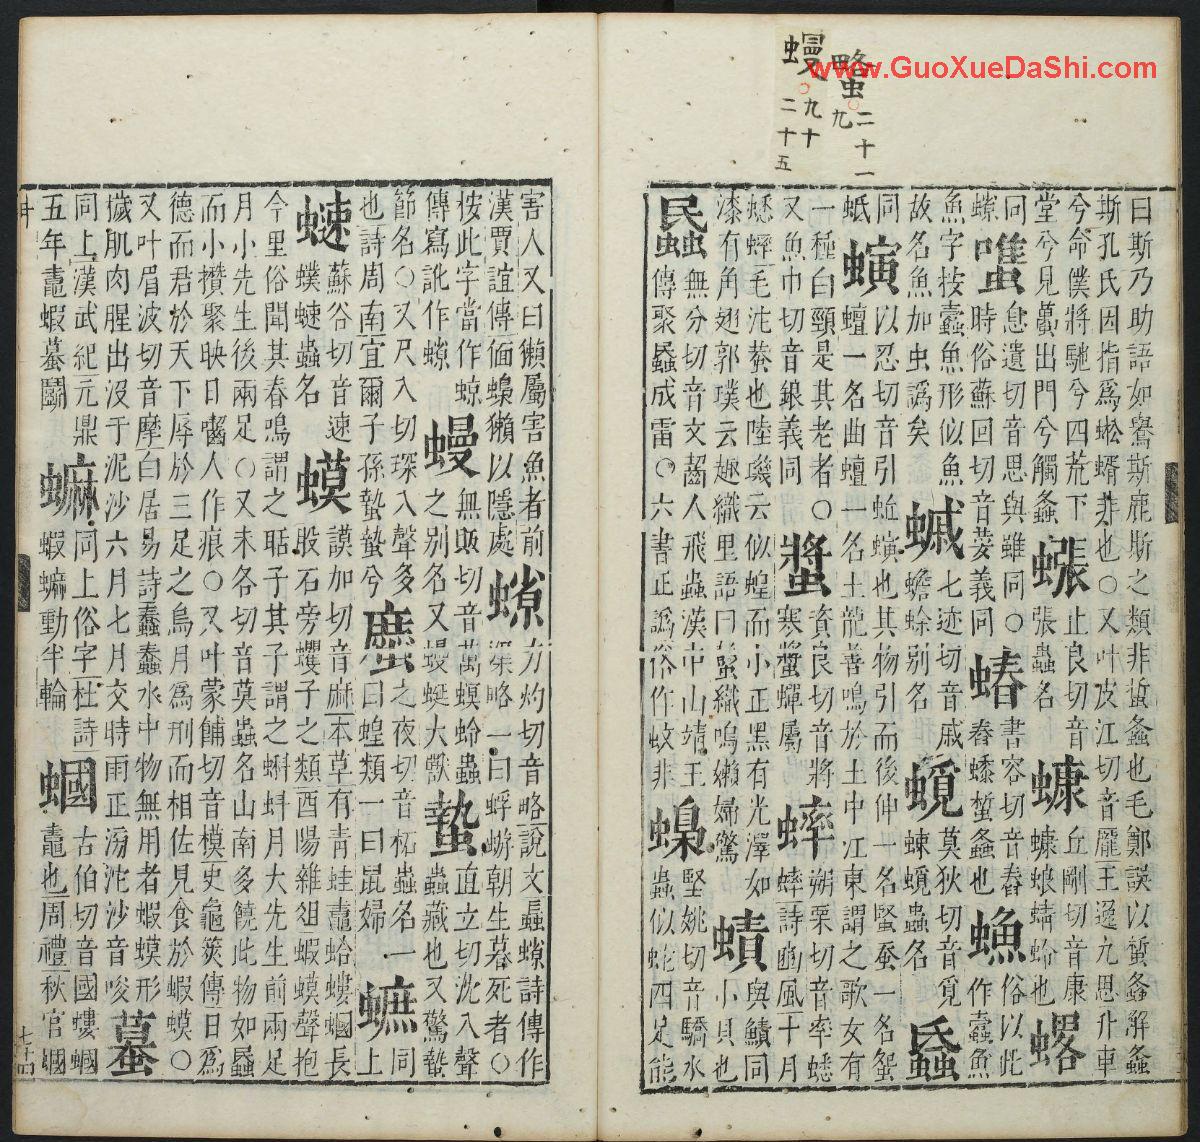 www.GuoXueDaShi.com
䗮九 二十一
蟃 九十 二十五
曰斯乃助語如鸒斯鹿斯之類非蜤螽也毛鄭誤以蜤螽解螽
斯孔氏因指爲蜙蝑非也○又叶皮江切音龎王逸九思升車
兮命僕將馳兮四荒下 𧐊 止良切音 螰 丘剛切音康
堂兮見蠆出門兮觸螽 張蟲名 螰蜋蜻蛉也
同 嘒 息遺切音思與雖同○ 蝽 書容切音舂 䲆 俗以此
螩 時俗蘇回切音荽義同 舂𧑓蜤螽也 作蠹魚
魚字按蠹魚形似魚 蠘 七迹切音戚 蜆 莫狄切音覓
故名魚加虫譌矣 蟾蜍别名 蜆蟲名
同 螾 以忍切音引蚯螾也其物引而後伸一名堅蚕一名
蚔 蟺一名曲蟺一名土龍善鳴於土中江東謂之歌女有
一種白頸是其老者○ 螿 資良切音將 蟀 朔栗切音率蟋
又魚巾切音銀義同 寒螿蟬屬 蟀詩豳風十月
蟋蟀毛沱蛬也陸璣云似蝗而小正黑有光澤如 蟦 小貝也
漆有角翅郭璞云趣織里語曰蜇織鳴嬾婦驚 與鰿同
䘇 無分切音文齧人飛蟲漢中山靖王 蟂 堅姚切音驕水
傳聚䘇成雷○六書正譌俗作蚊非 蟲似蛇四足能
害人又曰獺屬害魚者前 螩 力灼切音略說文螶螩詩傳作
漢賈誼傳偭蟂獺以隱處 渠略一曰蜉蝣朝生暮死者○
按此字當作蟟 蟃 無販切音萬螟蛉蟲 蟄 直立切沈入聲
傳寫訛作螩 之别名又蟃蜒大獸 蟲藏也又驚蟄
節名○又尺入切琛入聲多 䗪 之夜切音柘蟲名一
也詩周南宜爾子孫蟄蟄兮 曰蝗類一曰鼠婦 蟅 同上
𧐒 蘇谷切音速 蟆 謨加切音麻本草有青蛙鼃蛤螻蟈長
蟆𧐒蟲名 股石旁蠼子之類酉陽雜俎蝦蟆聲抱
今里俗聞其春鳴謂之聒子其子謂之蝌蚪月大先生前兩足
月小先生後兩足○又末各切音莫蟲名山南多饒此物如蟁
而小攢聚映日齧人作痕○又叶蒙餔切音模史龜筴傳日爲
德而君於天下辱於三足之烏月爲刑而相佐見食於蝦蟆○
又叶眉波切音摩白居易詩蠢蠢水中物無用者蝦蟆形 蟇
穢肌肉腥出沒于泥沙六月七月交時雨正滂沱沙音唆
同上漢武紀元鼎 䗫 同上俗字杜詩 蟈 古伯切音國螻蟈
五年鼃蝦蟇鬭 蝦䗫動半輪 鼃也周禮秋官蟈
七十四